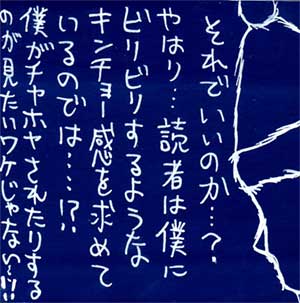 それでいいのか…?
やはり…読者は僕に
ビリビリするような
キンチョー感を求めて
いるのでは…!?
僕がチヤホヤされたりする
のが見たいワケじゃない〜!!!